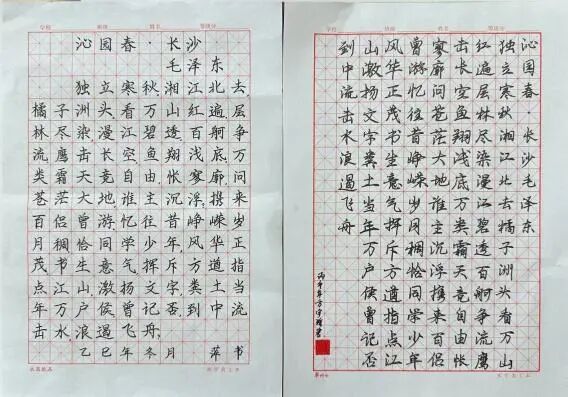 学校 班级 姓名 等级分
沁园春·长沙
毛泽东
独立寒秋湘江北去
橘子洲头看万山红遍层
林尽染漫江碧透百舸争
流鹰击长空鱼翔浅底万
类霜天竞自由怅寥廓问
苍茫大地谁主沉浮携来
百侣曾游忆往昔峥嵘岁
月稠恰同学少年风华正
茂书生意气挥斥方遒指
点江山激扬文字粪土当
年万户侯曾记否到中流
击水浪遏飞舟
乙巳年冬月 萍书
学校 班级 姓名 等级分
沁园春·长沙毛泽东
独立寒秋湘江北去橘子洲头看万山
红遍层林尽染漫江碧透百舸争流鹰
击长空鱼翔浅底万类霜天竞自由怅
寥廓问苍茫大地谁主沉浮携来百侣
曾游忆往昔峥嵘岁月稠恰同学少年
风华正茂书生意气挥斥方遒指点江
山激扬文字粪土当年万户侯曾记否
到中流击水浪遏飞舟